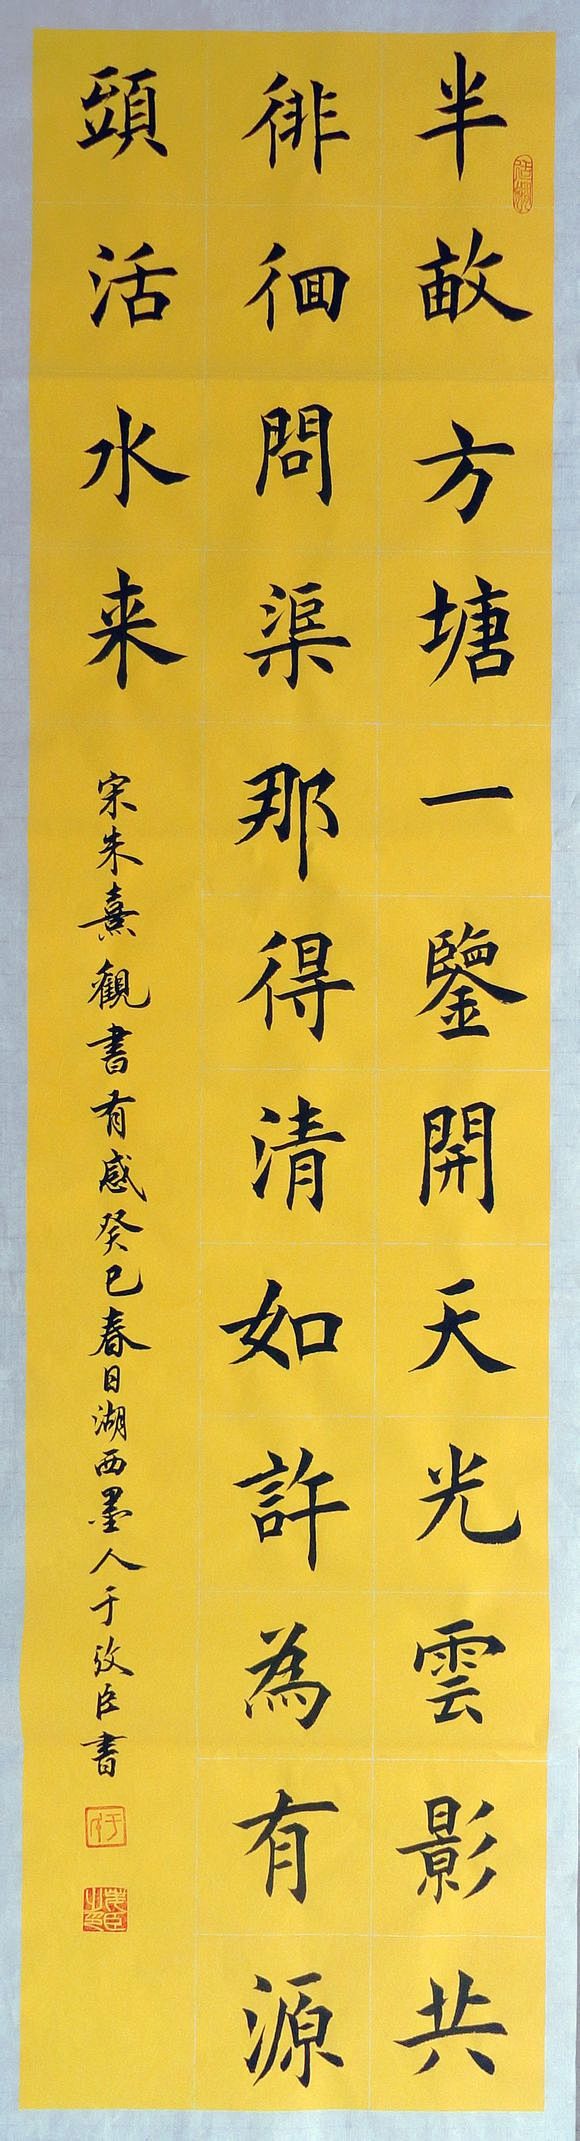 半畝方塘一鑒開天光雲影共
徘徊問渠那得清如許為有源
頭活水来
宋朱熹觀書有感癸巳春日湖西墨人于臣書